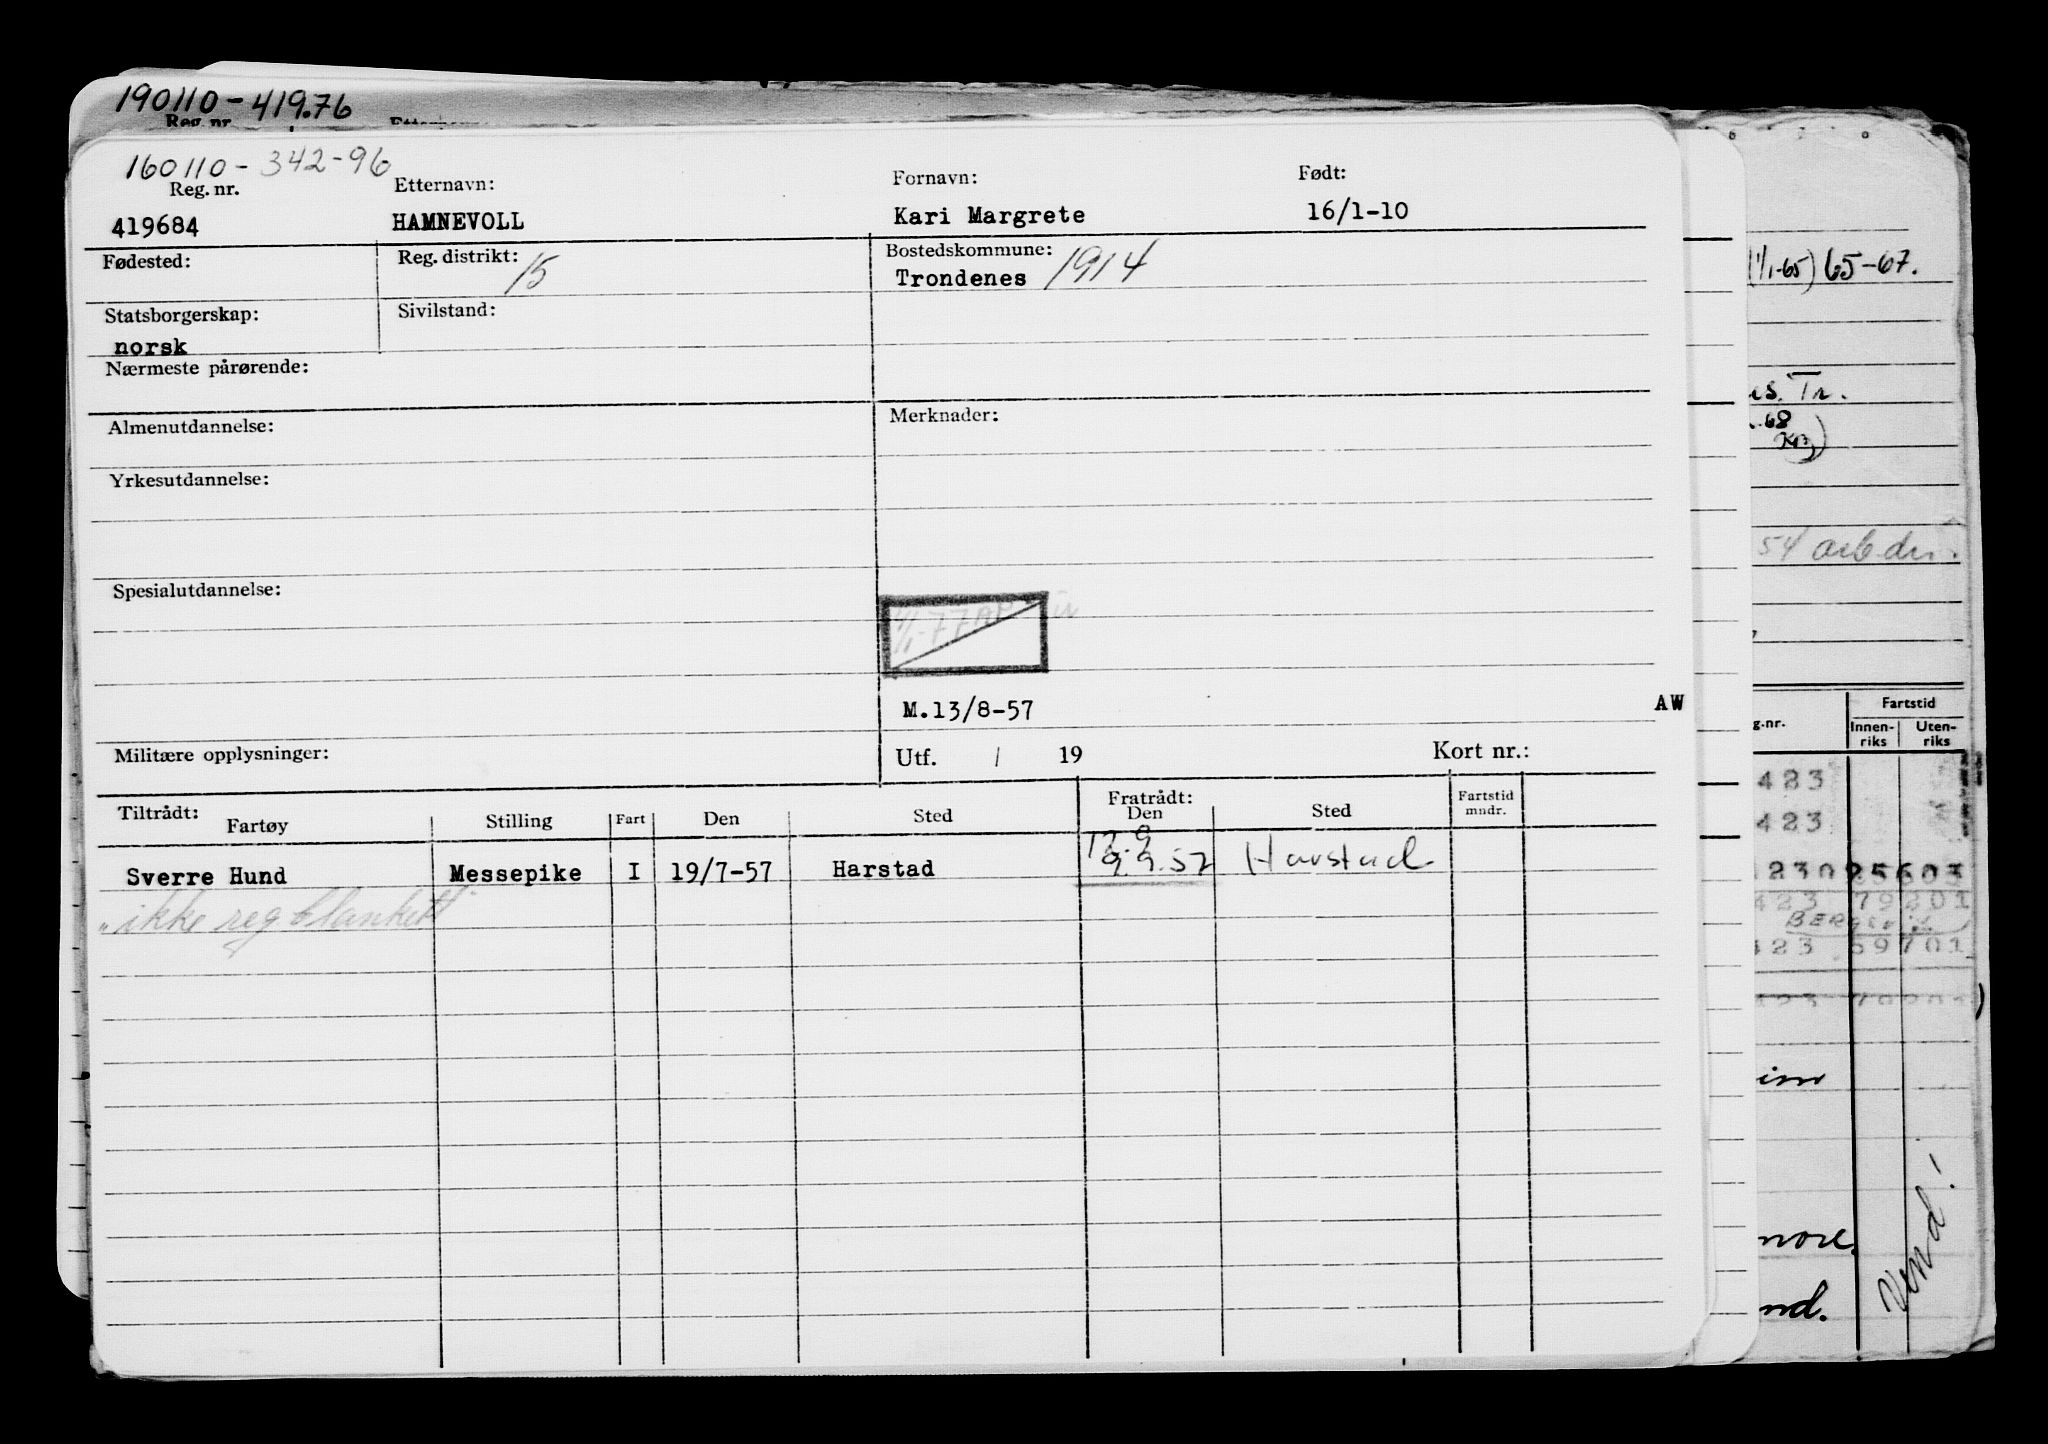 190110-419.76
Reg. nr.
160110-342-96
Reg. nr. Etternavn: Fornavn: Født:
419684 HAMNEVOLL Kari Margrete 16/1-10
Fødested: Reg. distrikt: 15 Bostedskommune:
Trondenes 1914
Statsborgerskap: Sivilstand:
norsk
Nærmeste pårørende:
Almenutdannelse: Merknader:
Yrkesutdannelse:
Spesialutdannelse:
M.13/8-57 AW
Militære opplysninger: Utf. / 19 Kort nr.:
Tiltrådt: Fratrådt:
Fartøy Stilling Fart Den Sted Den Sted Fartstid mndr.
Sverre Hund Messepike I 19/7-57 Harstad 9.9.57 Harstad
"ikke reg blankett"
(1/1-65) 65-67.
Tr.
68
54 arb.
g.nr. Fartstid
Innen-riks Uten-riks
423
423
23025603
423 79201
BERG
423 59701
Vend!